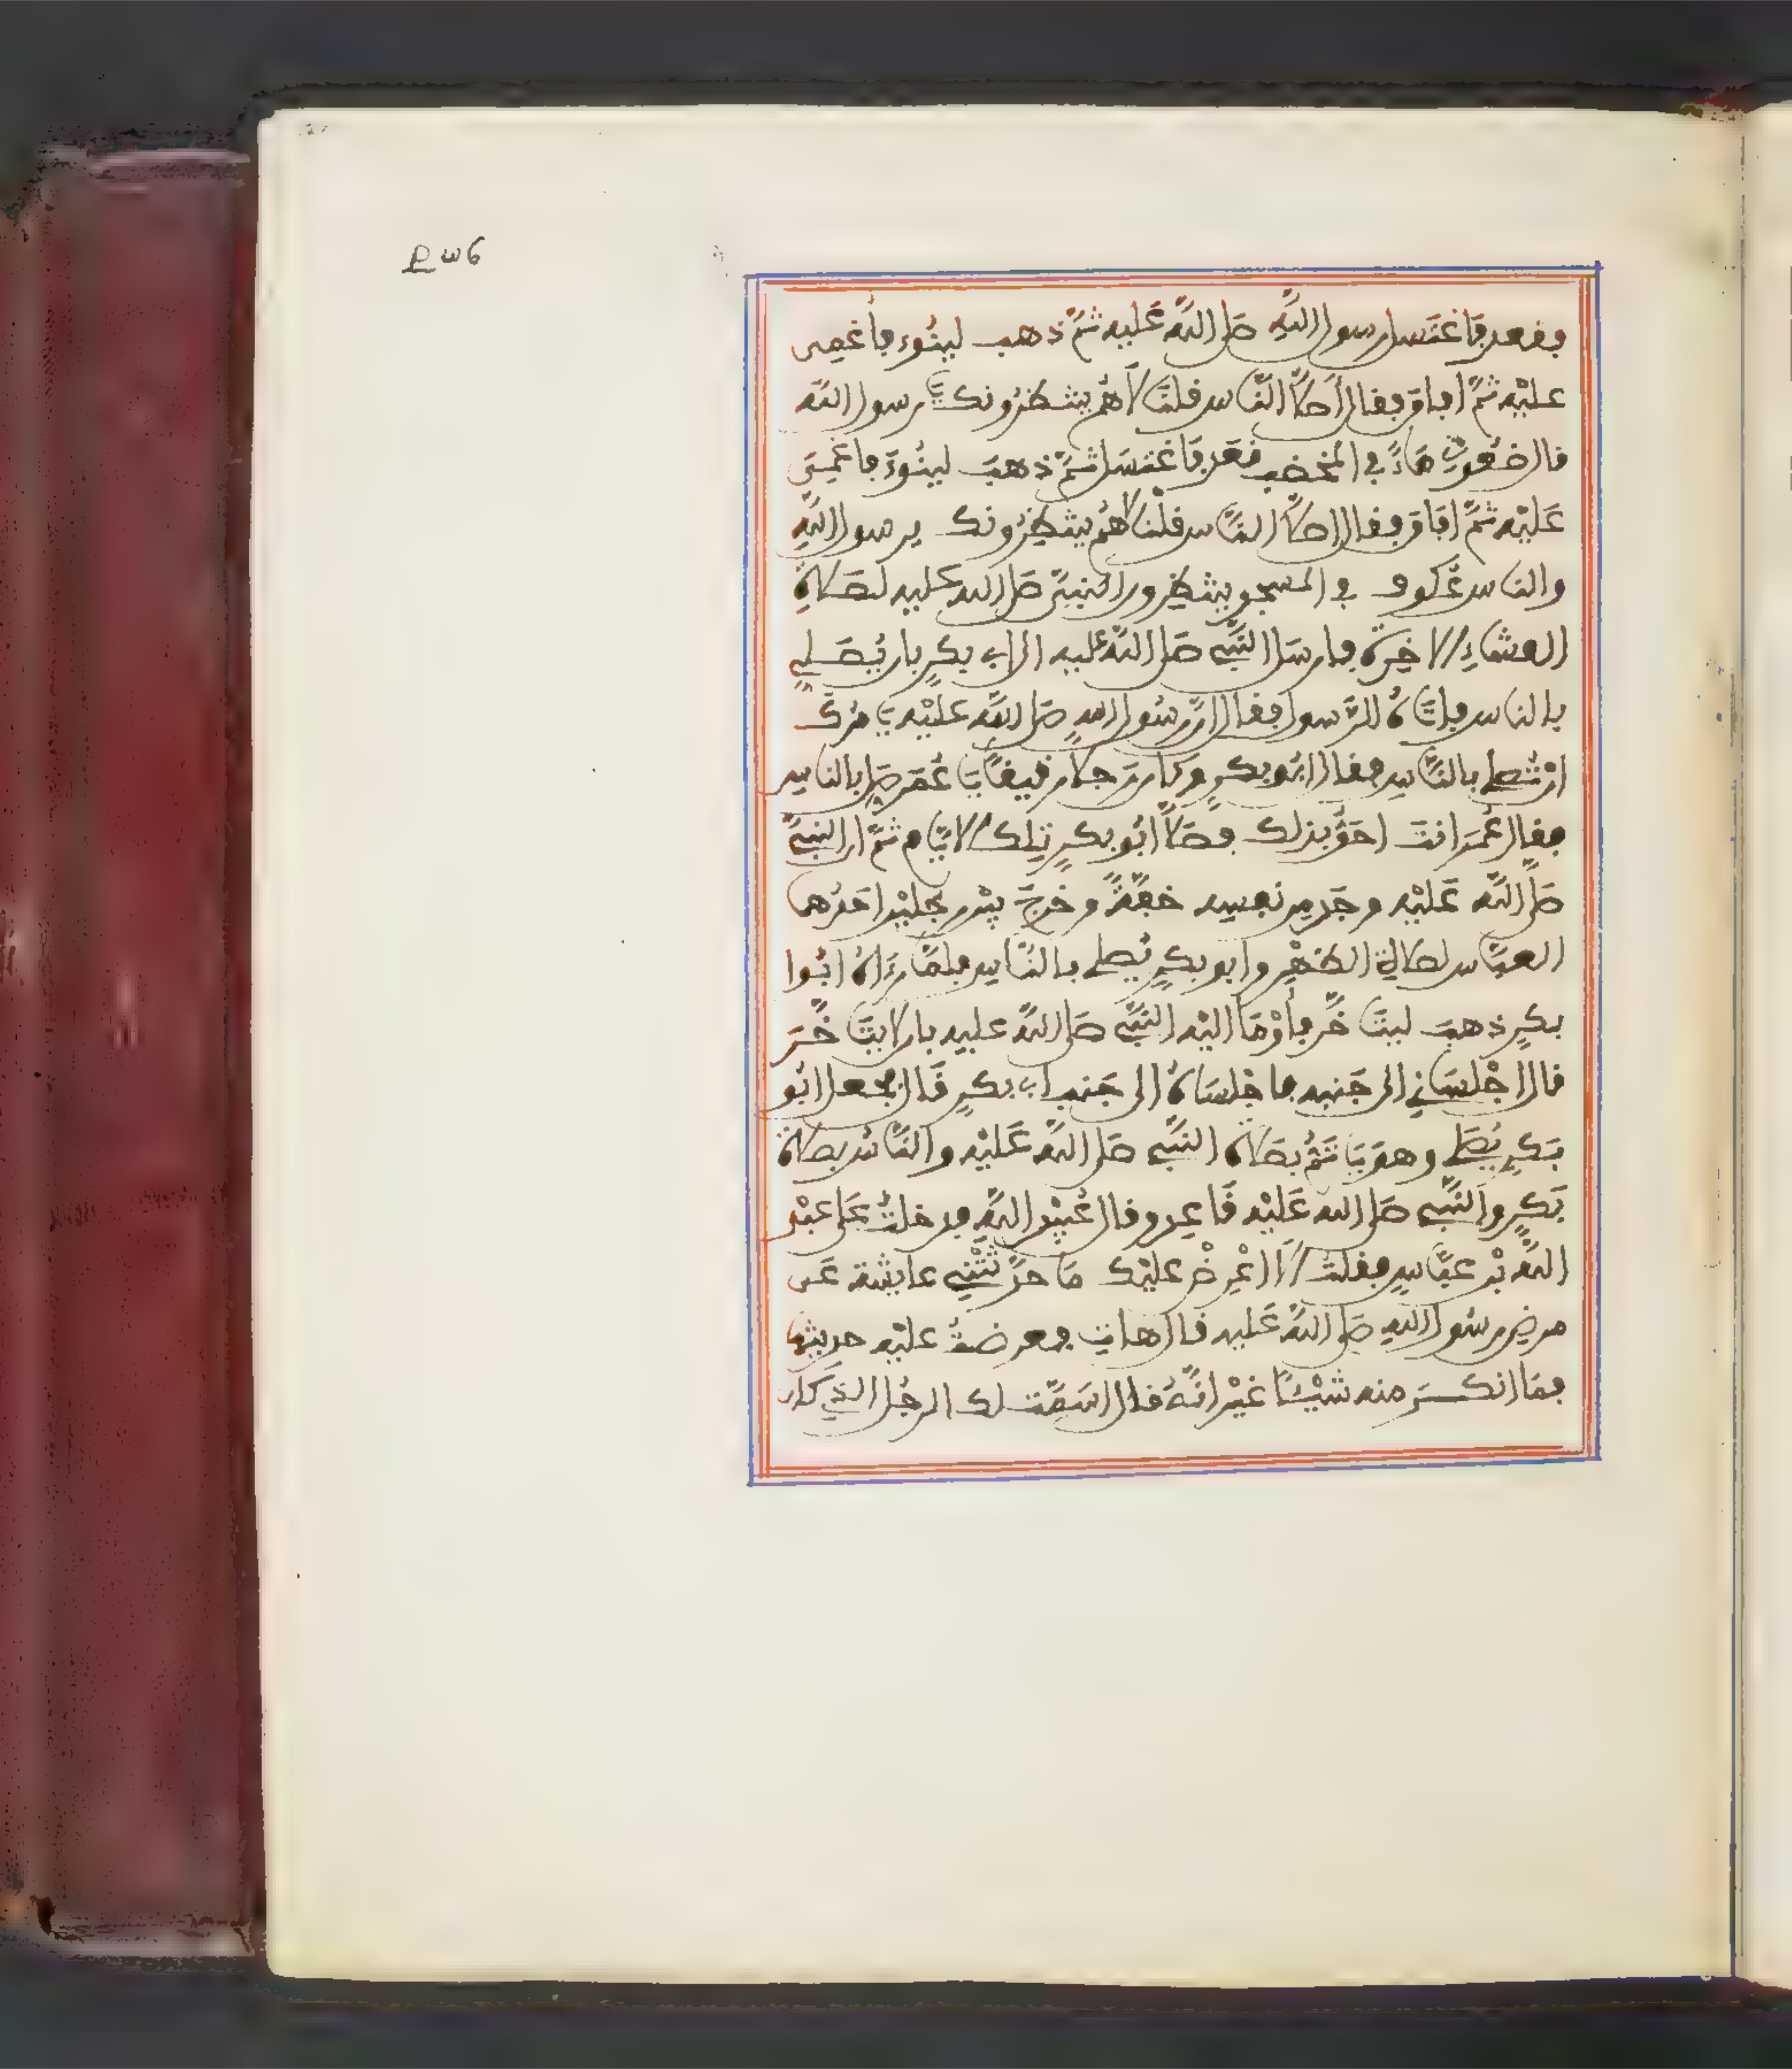 وقعد فاغتسل رسول اللّه صلى اللّه عليه ثمّ ذهب لينوء فأغمى
عليه ثمّ أفاق فقال أصلّا النّاس قلنا لا هم ينتظرونك يا رسول اللّه
قال ضعوني ماء في المخضب فقعد فاغتسل ثمّ ذهب لينوء فاغمي
عليه ثمّ افاق فقال اصلّا النّاس قلنا لا هم ينتظرونك يرسول اللّه
والناس عكوف في المسجد ينتظرون النبيّ صلى الله عليه لصلاة
العشاء الاخرة فارسل النّبي صلى اللّه عليه الى ابي بكر بان يصلي
بالناس فاتاه الرّسول فقال انّ رسول الله صلى اللّه عليه يامرك
ان تصلي بالنّاس فقال ابو بكر وكان رجلا رقيقا يا عمر صل بالناس
فقال عمر انت احق بذلك فصلّا ابو بكر تلك الايّام ثمّ ان النبيّ
صلى اللّه عليه وجد من نفسه خفّة وخرج بين رجلين احدهما
العبّاس لصلاة الظهر وابو بكر يصلي بالنّاس فلمّا رءاه ابوا
بكر ذهب ليتاخّر فأومَا اليه النّبي صلى اللّه عليه بان لا يتاخّر
قال اجلساني الى جنبه فاجلساه الى جنب ابي بكر قال فجعل ابو
بكر يصلي وهو ياتمّ بصلاة النّبي صلى اللّه عليه والنّاس بصلاة
بكر والنّبي صلى الله عليه قاعد وقال عبيد اللّه فدخلت على عبد
اللّه بن عبّاس فقلت الا اعرض عليك ما حدّثتني عايشة عن
مرض رسول الله صلى اللّه عليه قال هات فعرضت عليه حديثها
فما انكر منه شيئا غير انّه قال اسمّت لك الرجل الذي كان